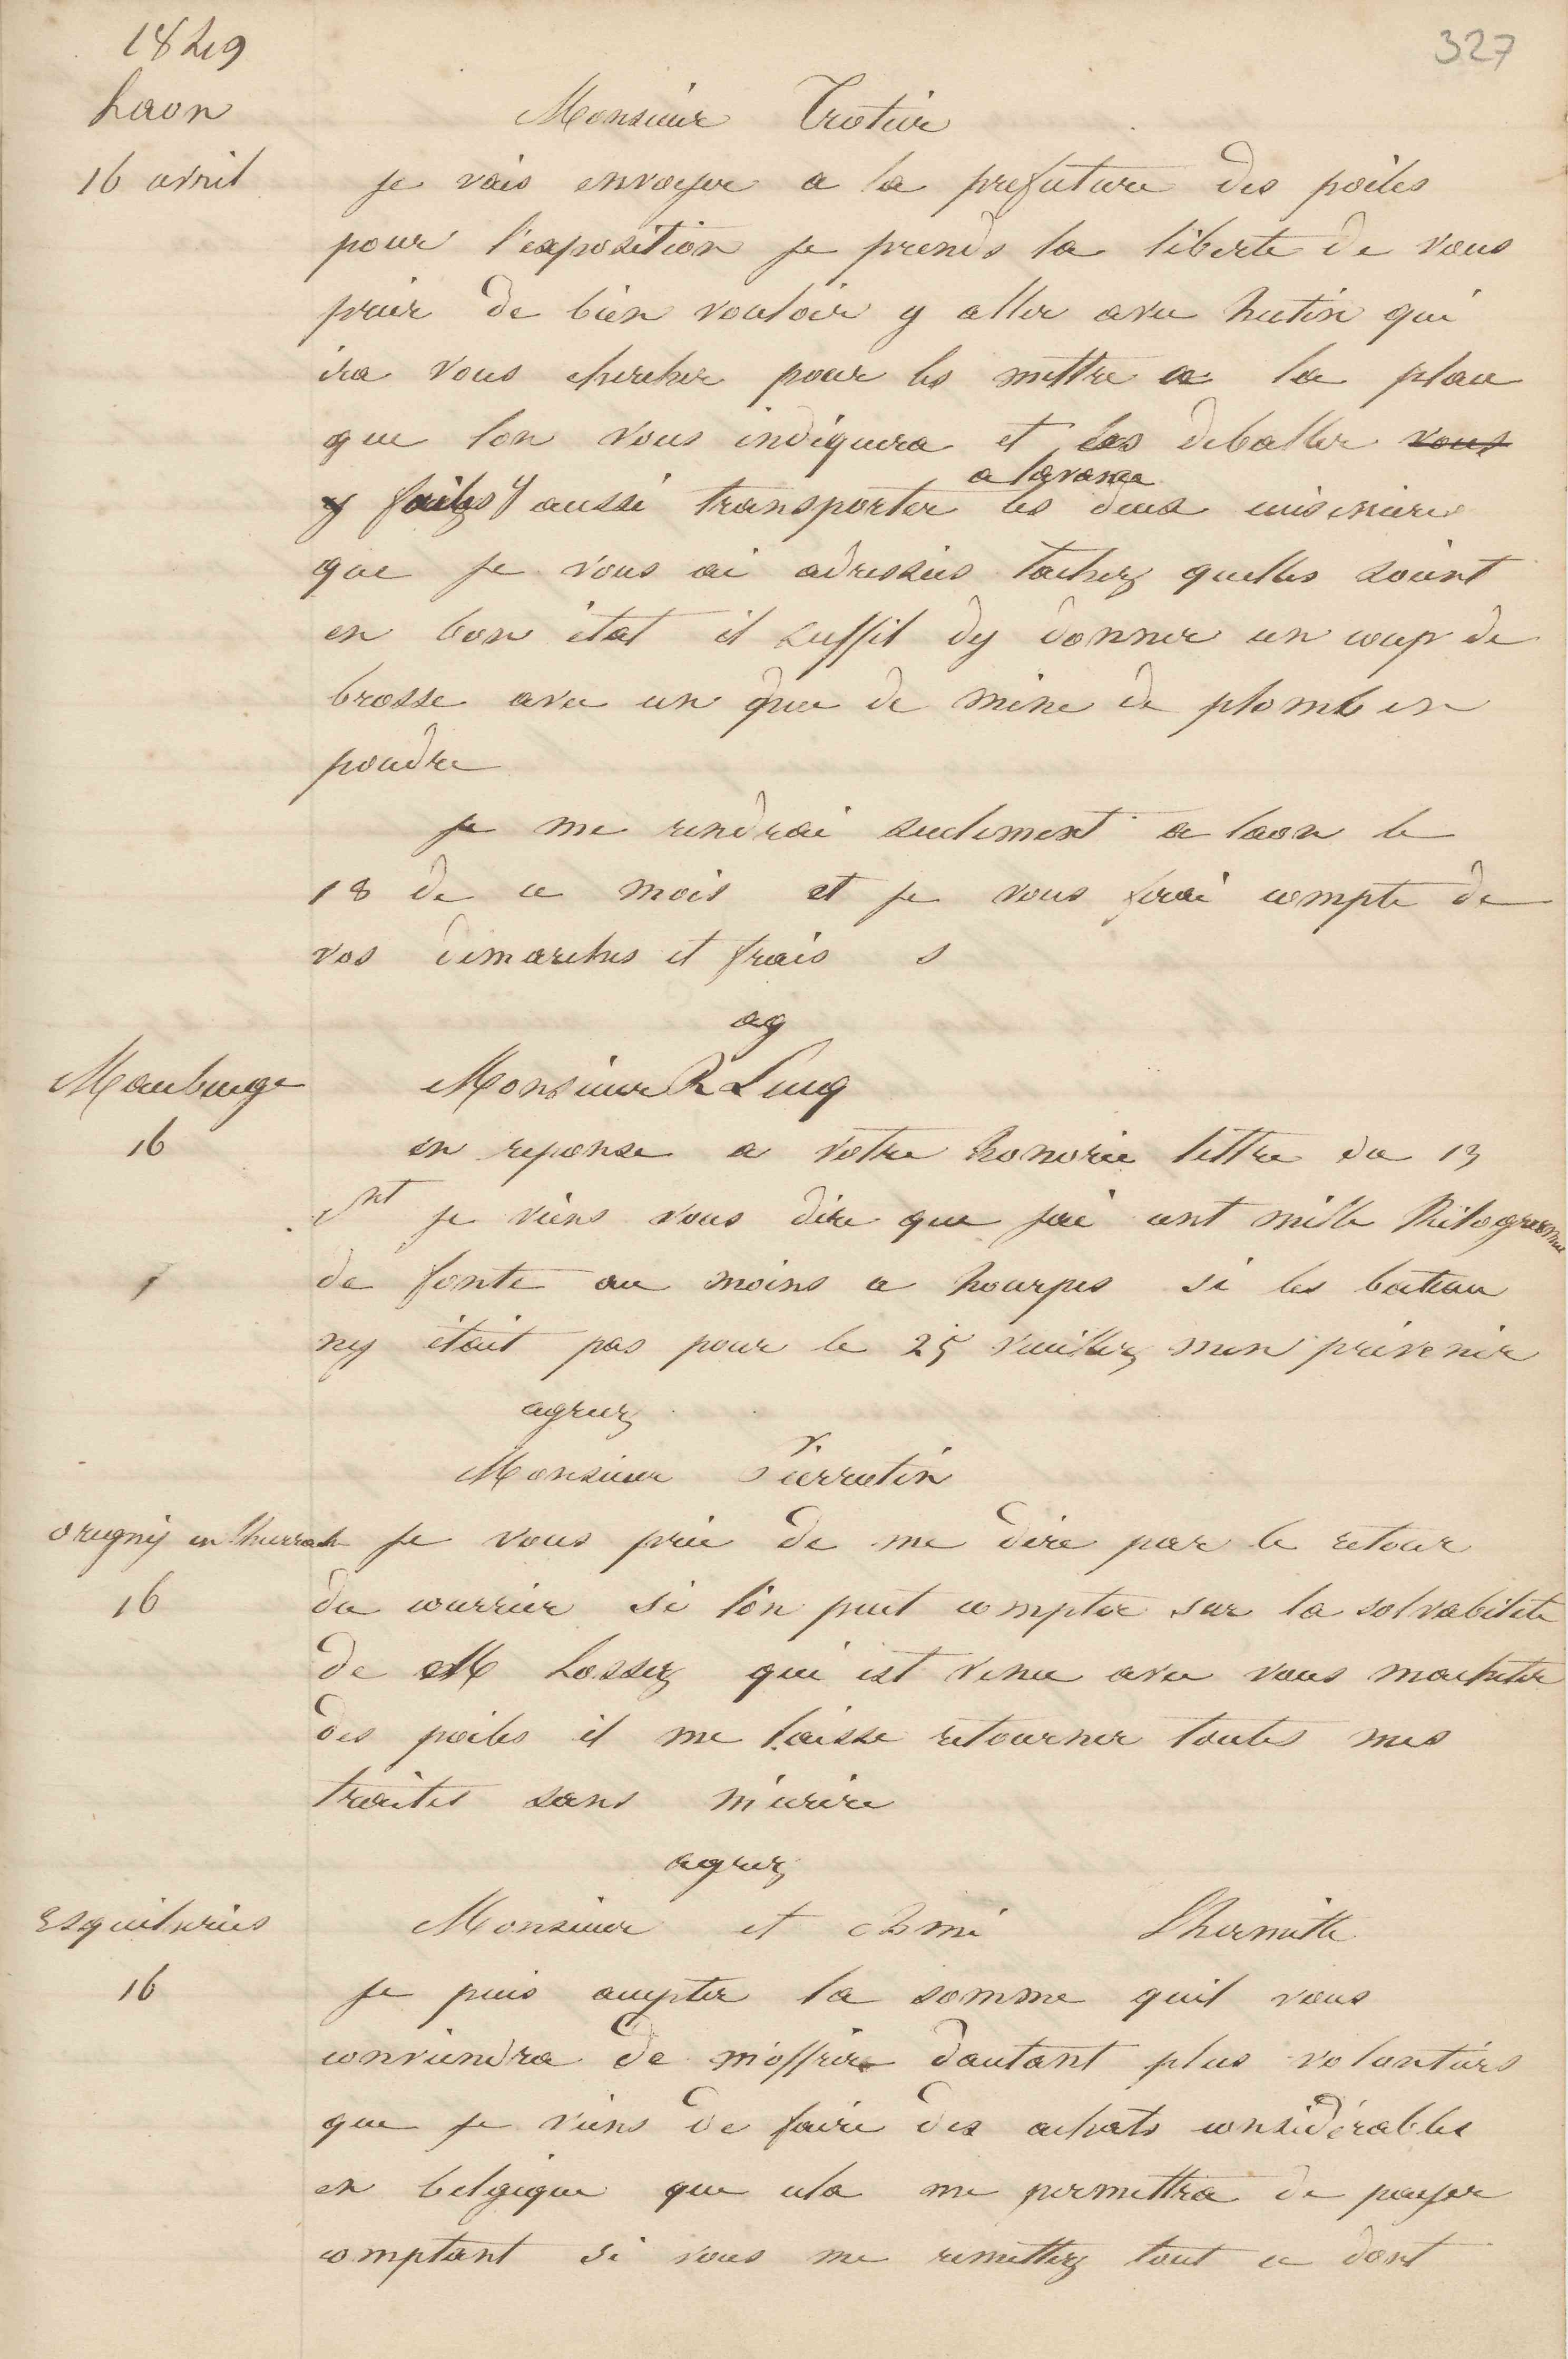 1849
327
Laon
Monsieur Trotier
16 avril
je vais envoyer a la prefecture des poêles
pour l'exposition je prends la liberte de vous
prier de bien vouloir y aller avec hutin qui
ira vous chercher pour les mettre a la place
que lon vous indiquera et les deballer vous
a lavance
y faites y aussi transporter les deux cuisinieres
que je vous ai adressées tachez quelles soient
en bon état il suffit dy donner un coup de
brosse avec un peu de mine de plomb en
poudre
je me rendrai seulement a laon le
18 de ce mois et je vous ferai compte de
vos demarches et frais s
ag
Maubeuge
Monsieur R Lucq
16
en reponse a votre honorée lettre du 13
ct je viens vous dire que jai cent mille Kilogramme
de fonte au moins a hourpes si les bateau
ny était pas pour le 25 veuillez men prévenir
agreez
Monsieur Pierrotin
origny en thierrach
je vous prie de me dire par le retour
16
du courrier si l'on peut compter sur la solvabilité
de M Lossez qui est venu avec vous macheter
des poeles il me laisse retourner toutes mes
traites sans m'ecrire
agreez
Esquiheries
Monsieur et Ami Lhermitte
16
je puis accepter la somme quil vous
conviendra de m'offrir dautant plus volontiers
que je viens de faire des achats considérables
en belgique que cela me permettra de payer
comptant si vous me remettez tout ce dont